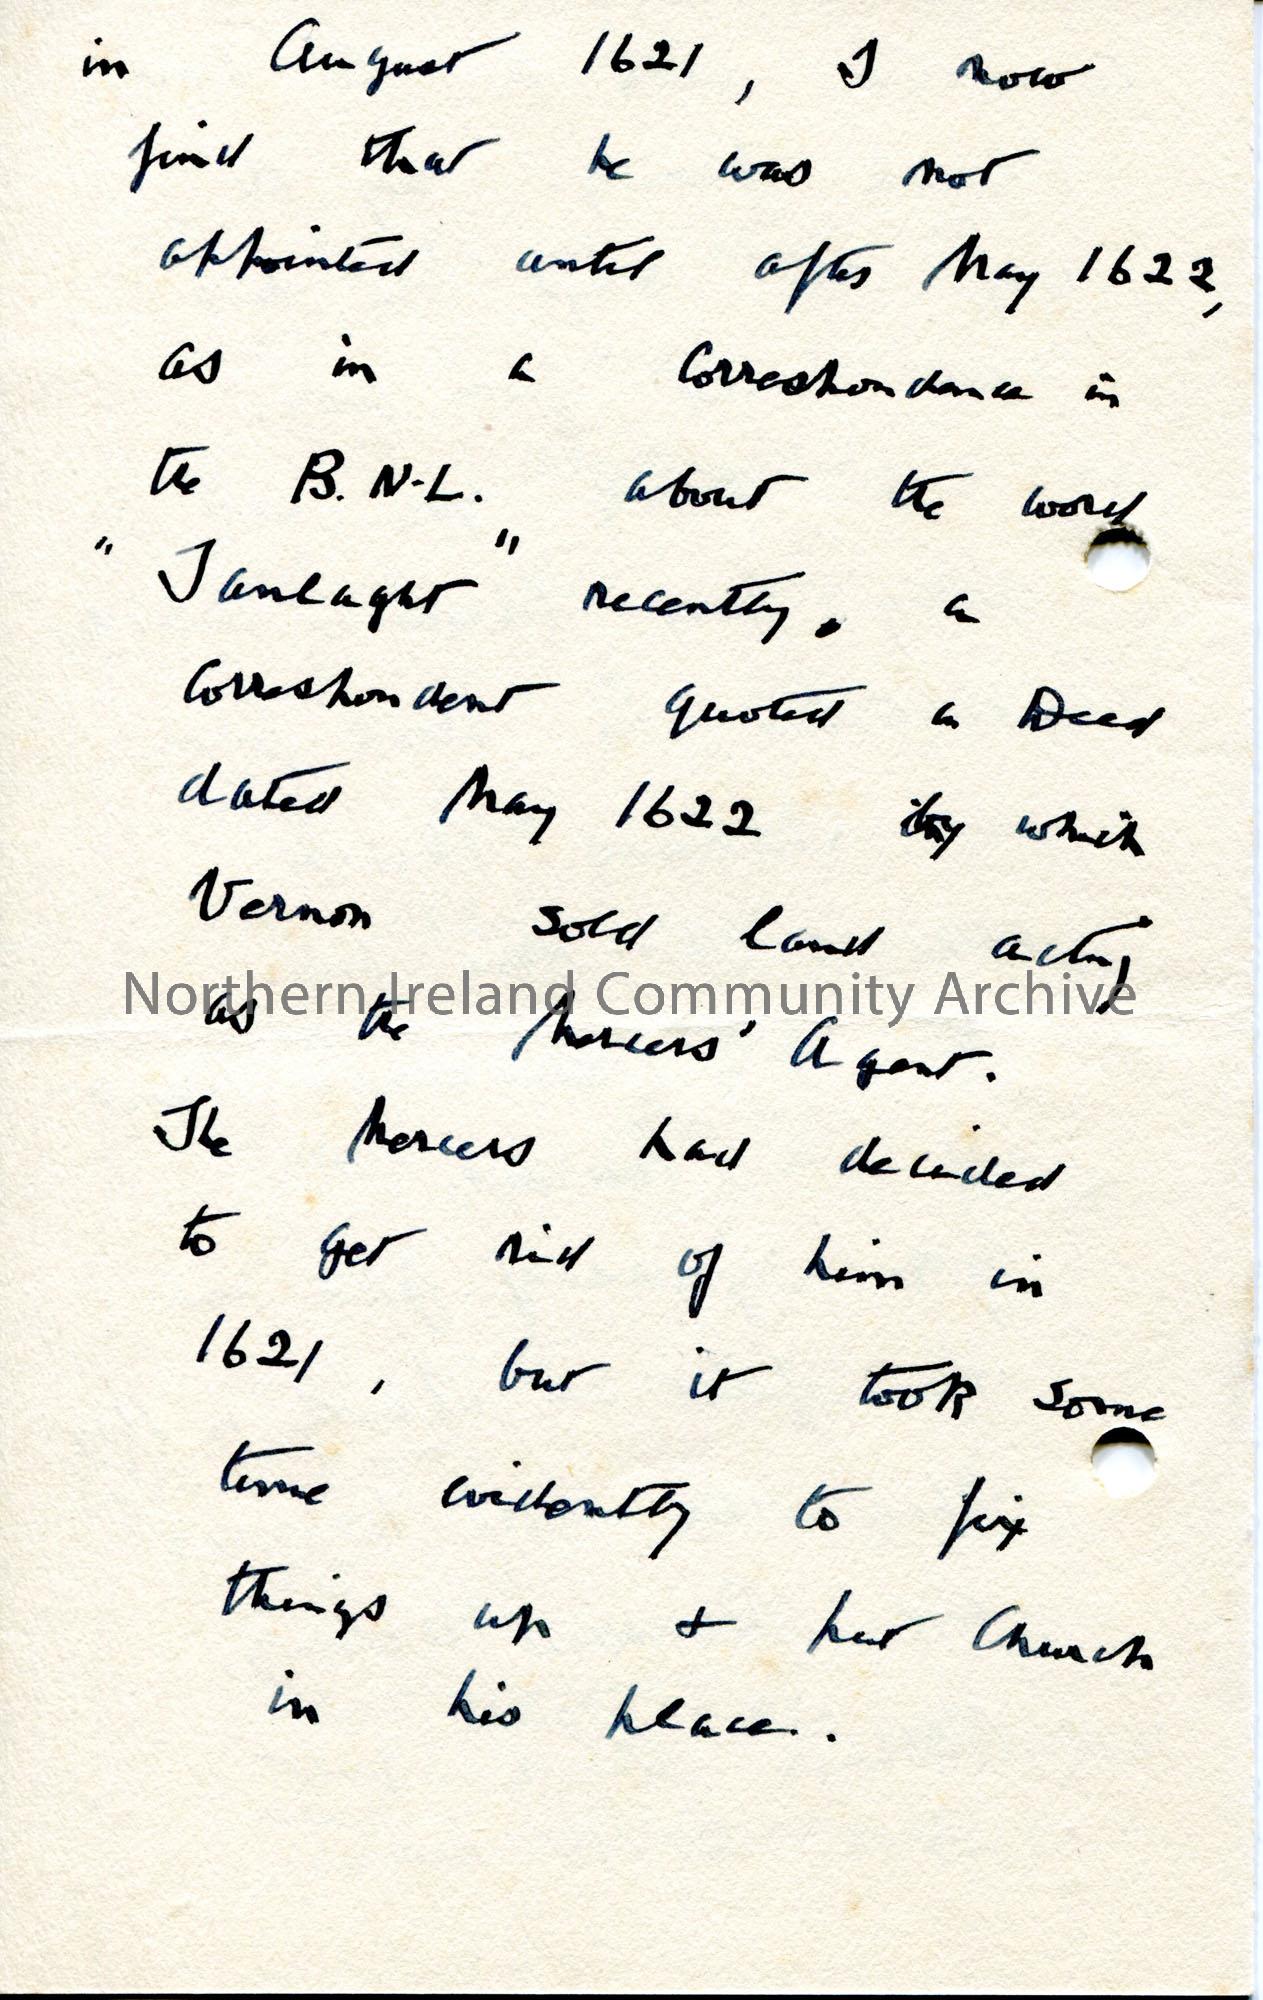 in August 1621, I now
find that he was not
appointed until after May 1622,
as in a Correspondence in
the B.N-L. about the word
"Tamlaght" recently, a
Correspondent quoted a Deed
dated May 1622 by which
Vernon sold land acting
Northern Ireland Community Archive
as the Mercers' Agent.
The Mercers had decided
to get rid of him in
1621, but it took some
time evidently to fix
things up & put Church
in his place.